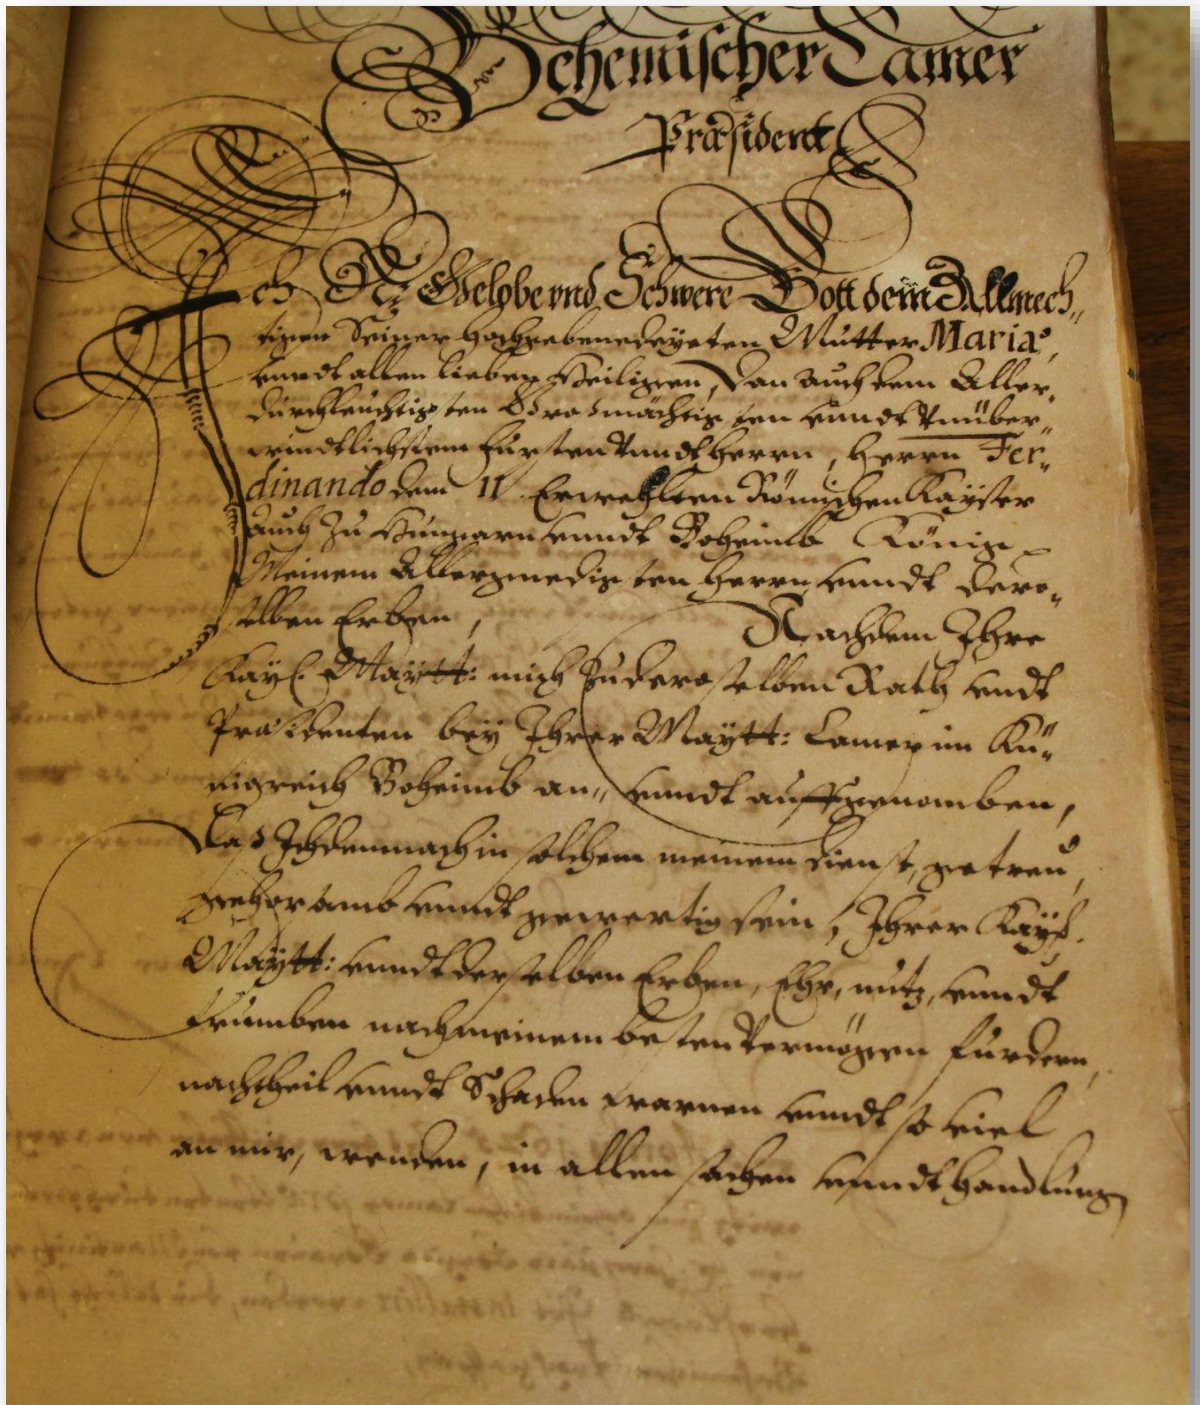 Behemischer Camer
Præsident
Ich N: Gelobe vnd Schwere Gott dem Allmech„
tigen Seiner hochgebenedeyeten Mutter Maria,
vnndt allen lieben Heiligen, Dan auch dem Aller„
durchleuchtigsten Grosmächtigsten vnndt Vnüber„
windtlichstem Fürsten Vnndt Herrn, Herrn Fer„
dinando dem II Erwehlten Römischen Kayser
auch Zu Hungarn vnndt Boheimb König
Meinem Allergnedigsten Herrn vnndt dero„
selben Erben, Nachdem Ihre
Kays. Maytt: mich Zu deroselben Rath vndt
Præsidenten bey Ihrer Maytt: Camer im Kü„
nigreich Boheimb an„ vnndt auffgenomben,
Das Ich demnach in solchem meinem dienst, getreu,
gehorsamb vnndt gewertig sein, Ihrer Kays.
Maytt: vnndt derselben Erben, Ehr, nutz, vnndt
frumben nach meinem besten Vermögen fürdern,
nachtheil vnndt Schaden warnen vnndt so viel
an mir, wenden, in allen sachen vnndt handlung